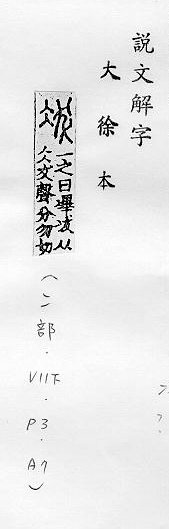 説文解字
大徐本
一之日㓖冹从
仌犮聲分勿切
（冫部．VII下．P3．A7）